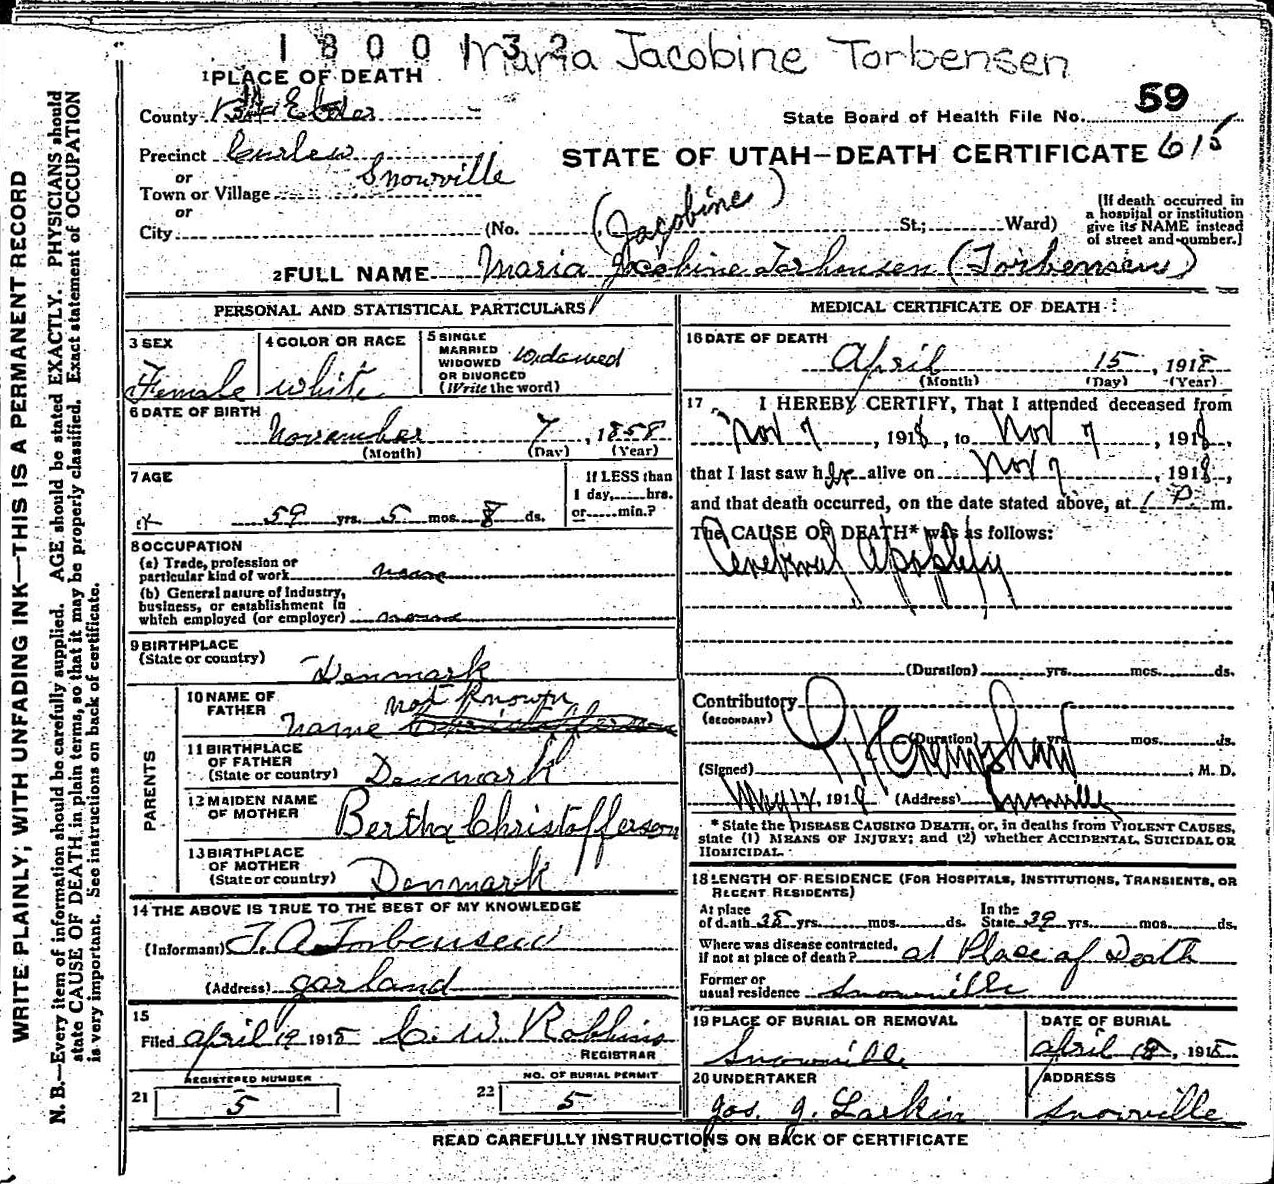 1 8 0 0 1 3 2
Maria Jacobine Torbensen
1 PLACE OF DEATH
59
County Box Elder
State Board of Health File No.
Precinct Curlew
STATE OF UTAH—DEATH CERTIFICATE 615
or
Town or Village Snowville
or
City (No. St.; Ward)
[If death occurred in
a hospital or institution
give its NAME instead
of street and number.]
(Jacobine)
2 FULL NAME Maria Jacobine Torhensen (Torbensen)
PERSONAL AND STATISTICAL PARTICULARS
3 SEX
Female
4 COLOR OR RACE
white
5 SINGLE
MARRIED
WIDOWED
OR DIVORCED
(Write the word)
Widowed
6 DATE OF BIRTH
November 7, 1858
(Month) (Day) (Year)
7 AGE
59 yrs. 5 mos. 8 ds.
If LESS than
1 day, hrs.
or min.?
8 OCCUPATION
(a) Trade, profession or
particular kind of work none
(b) General nature of Industry,
business, or establishment in
which employed (or employer) none
9 BIRTHPLACE
(State or country) Denmark
PARENTS
10 NAME OF
FATHER
not known
name Christofferson
11 BIRTHPLACE
OF FATHER
(State or country) Denmark
12 MAIDEN NAME
OF MOTHER Bertha Christofferson
13 BIRTHPLACE
OF MOTHER
(State or country) Denmark
14 THE ABOVE IS TRUE TO THE BEST OF MY KNOWLEDGE
(Informant) T. A. Torbensen
(Address) garland
15
Filed april 19 1918 C. W. Robbins
REGISTRAR
REGISTERED NUMBER
21 5
NO. OF BURIAL PERMIT
22 5
MEDICAL CERTIFICATE OF DEATH
16 DATE OF DEATH
April 15, 1918
(Month) (Day) (Year)
17 I HEREBY CERTIFY, That I attended deceased from
Nov 7, 1918, to Nov 7, 1918,
that I last saw her alive on Nov 7, 1918,
and that death occurred, on the date stated above, at 1 P. m.
The CAUSE OF DEATH* was as follows:
Cerebral Apoplexy
(Duration) yrs. mos. ds.
Contributory
(SECONDARY)
(Duration) yrs. mos. ds.
(Signed) M. D.
1918 (Address) Snowville
* State the DISEASE CAUSING DEATH, or, in deaths from VIOLENT CAUSES,
state (1) MEANS OF INJURY; and (2) whether ACCIDENTAL, SUICIDAL OR
HOMICIDAL.
18 LENGTH OF RESIDENCE (FOR HOSPITALS, INSTITUTIONS, TRANSIENTS, OR
RECENT RESIDENTS)
At place
of death 35 yrs. mos. ds.
In the
State 39 yrs. mos. ds.
Where was disease contracted,
if not at place of death? at Place of Death
Former or
usual residence Snowville
19 PLACE OF BURIAL OR REMOVAL
Snowville
DATE OF BURIAL
april 18, 1918
20 UNDERTAKER
Jos. J. Larkin
ADDRESS
Snowville
READ CAREFULLY INSTRUCTIONS ON BACK OF CERTIFICATE
WRITE PLAINLY; WITH UNFADING INK—THIS IS A PERMANENT RECORD
N. B.—Every item of information should be carefully supplied. AGE should be stated EXACTLY. PHYSICIANS should
state CAUSE OF DEATH in plain terms, so that it may be properly classified. Exact statement of OCCUPATION
is very important. See instructions on back of certificate.